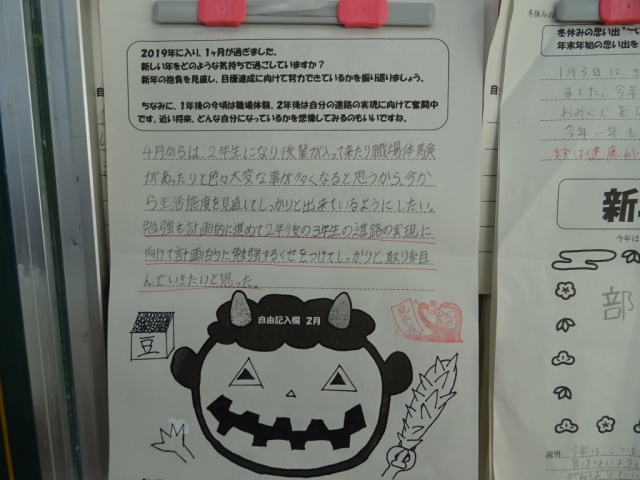 2019年に入り、1ヶ月が過ぎました。
新しい年をどのような気持ちで過ごしていますか?
新年の抱負を見直し、目標達成に向けて努力できているかを振り返りましょう。
ちなみに、1年後の今頃は職場体験。2年後は自分の進路の実現に向けて奮闘中
です。近い将来、どんな自分になっているかを想像してみるのもいいですね。
4月からは、2年生になり後輩が入って来たり職場体験
があったりと色々大変な事が多くなると思うから、今か
ら生活態度を見直してしっかりと出来ているようにしたい。
勉強も計画的に進めて2年後の3年生の進路の実現に
向けて計画的に勉強するくせをつけてしっかりと取り組
んでいきたいと思った。
自由記入欄 2月
豆
冬休みの
冬休みの思い出
年末年始の思い出を
1月3日に、
ました。今年
おみくじを
今年一年も
まずは健康が
新
今年は
部
説明